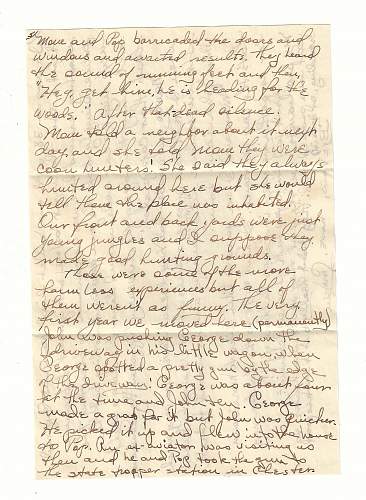 Mom and Pop barricaded the doors and
windows and awaited results. They heard
the sound of running feet and then,
"Hey, get him, he is heading for the
woods." After that dead silence.
Mom told a neighbor about it next
day, and she told Mom they were
coon hunters! She said they always
hunted around here but she would
tell them the place was inhabited.
Our front and back yards were just
young jungles and I suppose they
made good hunting grounds.
These were some of the more
harmless experiences but all of
them weren't as funny. The very
first year we moved here (permanently)
John was pushing George down the
driveway in his little wagon, when
George spotted a pretty gun by the edge
of the driveway! George was about four
at the time and John ten. George
made a grab for it but John was quicker.
He picked it up and flew into the house
to Pop. An aviator was visiting us
then and he and Pop took the gun to
the state trooper station in Chester